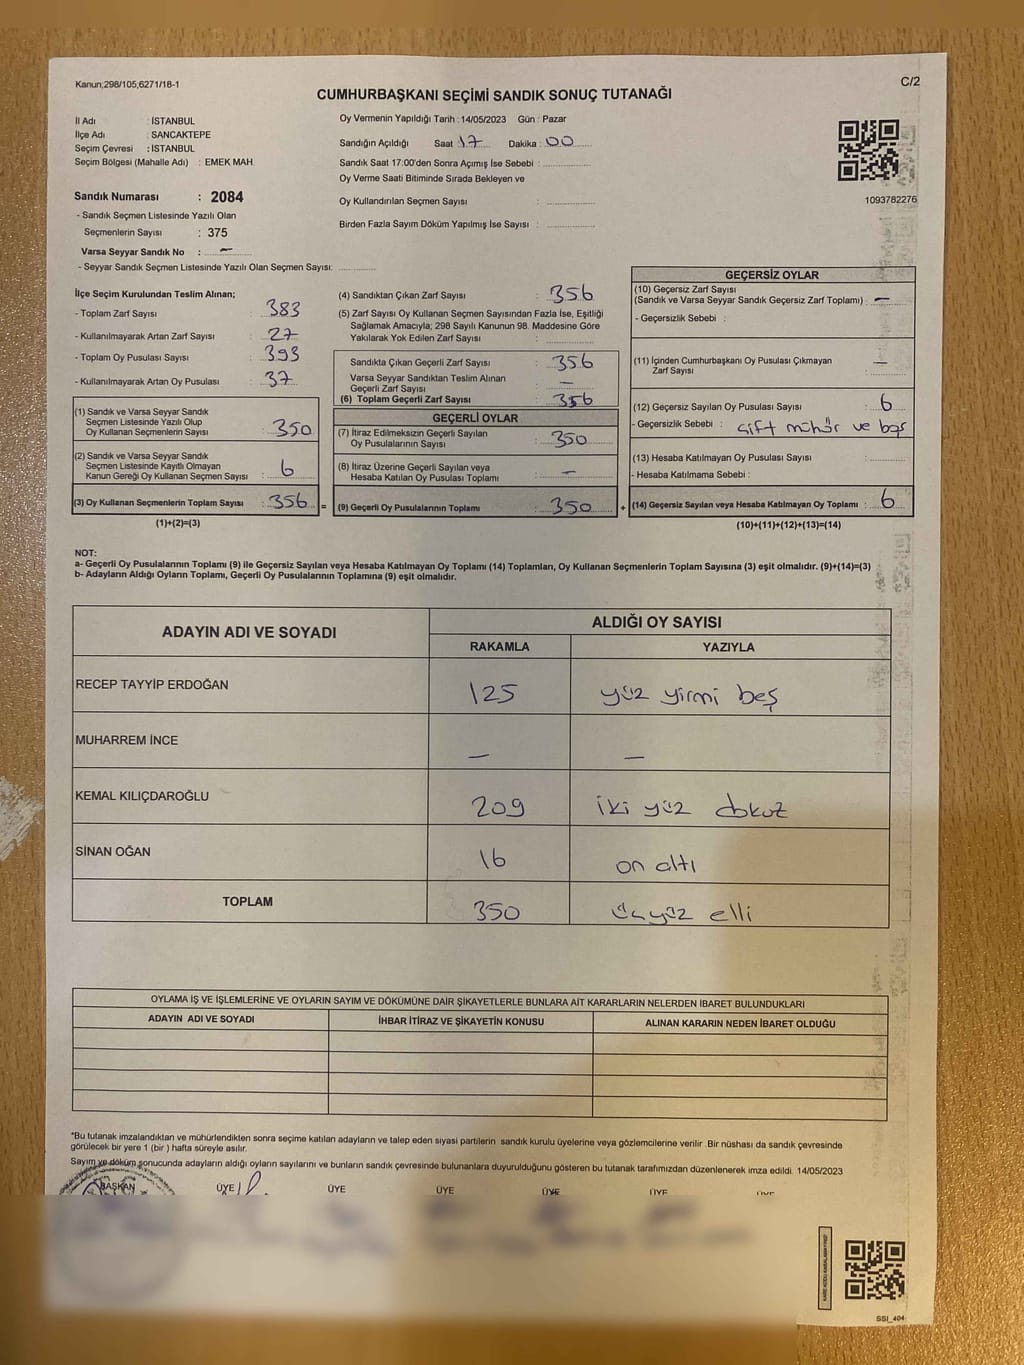 Kanun;298/105;6271/18-1
C/2
CUMHURBAŞKANI SEÇİMİ SANDIK SONUÇ TUTANAĞI
İl Adı : İSTANBUL
İlçe Adı : SANCAKTEPE
Seçim Çevresi : İSTANBUL
Seçim Bölgesi (Mahalle Adı) : EMEK MAH
Sandık Numarası : 2084
- Sandık Seçmen Listesinde Yazılı Olan
Seçmenlerin Sayısı : 375
Varsa Seyyar Sandık No : –
- Seyyar Sandık Seçmen Listesinde Yazılı Olan Seçmen Sayısı:
Oy Vermenin Yapıldığı Tarih : 14/05/2023 Gün : Pazar
Sandığın Açıldığı Saat 17 Dakika : 00
Sandık Saat 17:00'den Sonra Açımış İse Sebebi :
Oy Verme Saati Bitiminde Sırada Bekleyen ve
Oy Kullandırılan Seçmen Sayısı :
Birden Fazla Sayım Döküm Yapılmış İse Sayısı :
1093782276
İlçe Seçim Kurulundan Teslim Alınan;
- Toplam Zarf Sayısı : 383
- Kullanılmayarak Artan Zarf Sayısı : 27
- Toplam Oy Pusulası Sayısı : 393
- Kullanılmayarak Artan Oy Pusulası : 37
(1) Sandık ve Varsa Seyyar Sandık
Seçmen Listesinde Yazılı Olup
Oy Kullanan Seçmenlerin Sayısı : 350
(2) Sandık ve Varsa Seyyar Sandık
Seçmen Listesinde Kayıtlı Olmayan
Kanun Gereği Oy Kullanan Seçmen Sayısı : 6
(3) Oy Kullanan Seçmenlerin Toplam Sayısı : 356 =
(1)+(2)=(3)
(4) Sandıktan Çıkan Zarf Sayısı : 356
(5) Zarf Sayısı Oy Kullanan Seçmen Sayısından Fazla İse, Eşitliği
Sağlamak Amacıyla; 298 Sayılı Kanunun 98. Maddesine Göre
Yakılarak Yok Edilen Zarf Sayısı :
Sandıkta Çıkan Geçerli Zarf Sayısı : 356
Varsa Seyyar Sandıktan Teslim Alınan
Geçerli Zarf Sayısı : –
(6) Toplam Geçerli Zarf Sayısı : 356
GEÇERLİ OYLAR
(7) İtiraz Edilmeksizin Geçerli Sayılan
Oy Pusulalarının Sayısı : 350
(8) İtiraz Üzerine Geçerli Sayılan veya
Hesaba Katılan Oy Pusulası Toplamı : –
(9) Geçerli Oy Pusulalarının Toplamı : 350 +
GEÇERSİZ OYLAR
(10) Geçersiz Zarf Sayısı
(Sandık ve Varsa Seyyar Sandık Geçersiz Zarf Toplamı) : –
- Geçersizlik Sebebi :
(11) İçinden Cumhurbaşkanı Oy Pusulası Çıkmayan
Zarf Sayısı : –
(12) Geçersiz Sayılan Oy Pusulası Sayısı : 6
- Geçersizlik Sebebi : çift mühür ve boş
(13) Hesaba Katılmayan Oy Pusulası Sayısı :
- Hesaba Katılmama Sebebi :
(14) Geçersiz Sayılan veya Hesaba Katılmayan Oy Toplamı : 6
(10)+(11)+(12)+(13)=(14)
NOT:
a- Geçerli Oy Pusulalarının Toplamı (9) ile Geçersiz Sayılan veya Hesaba Katılmayan Oy Toplamı (14) Toplamları, Oy Kullanan Seçmenlerin Toplam Sayısına (3) eşit olmalıdır. (9)+(14)=(3)
b- Adayların Aldığı Oyların Toplamı, Geçerli Oy Pusulalarının Toplamına (9) eşit olmalıdır.
ADAYIN ADI VE SOYADI
ALDIĞI OY SAYISI
RAKAMLA YAZIYLA
RECEP TAYYİP ERDOĞAN 125 yüz yirmi beş
MUHARREM İNCE – –
KEMAL KILIÇDAROĞLU 209 iki yüz dokuz
SİNAN OĞAN 16 on altı
TOPLAM 350 üçyüz elli
OYLAMA İŞ VE İŞLEMLERİNE VE OYLARIN SAYIM VE DÖKÜMÜNE DAİR ŞİKAYETLERLE BUNLARA AİT KARARLARIN NELERDEN İBARET BULUNDUKLARI
ADAYIN ADI VE SOYADI İHBAR İTİRAZ VE ŞİKAYETİN KONUSU ALINAN KARARIN NEDEN İBARET OLDUĞU
*Bu tutanak imzalandıktan ve mühürlendikten sonra seçime katılan adayların ve talep eden siyasi partilerin sandık kurulu üyelerine veya gözlemcilerine verilir .Bir nüshası da sandık çevresinde
görülecek bir yere 1 (bir) hafta süreyle asılır.
Sayım ve döküm sonucunda adayların aldığı oyların sayılarını ve bunların sandık çevresinde bulunanlara duyurulduğunu gösteren bu tutanak tarafımızdan düzenlenerek imza edildi. 14/05/2023
BAŞKAN ÜYE ÜYE ÜYE ÜYE ÜYE ÜYE
SSI_404